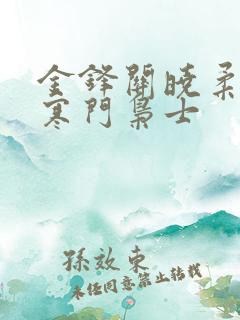 金鋒關曉柔
寒門梟士
孫效東
未經同意禁止轉載